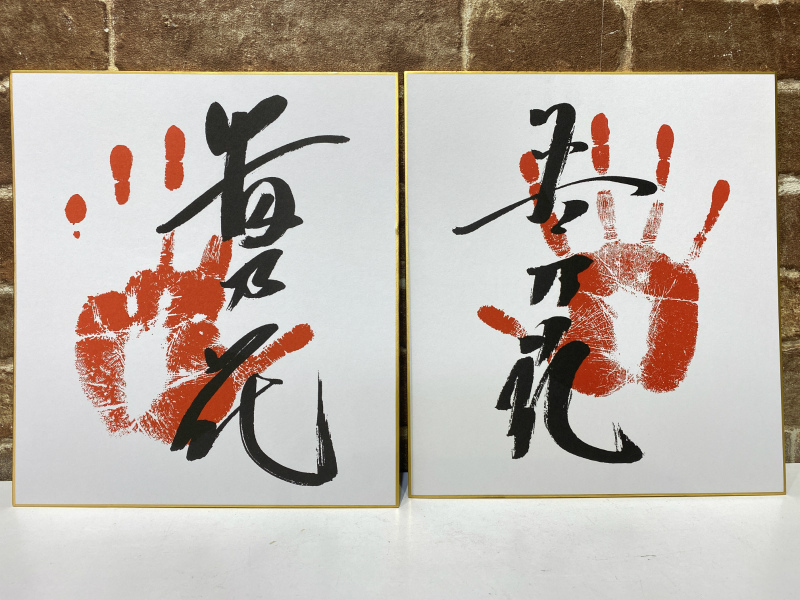 貴乃花
若乃花